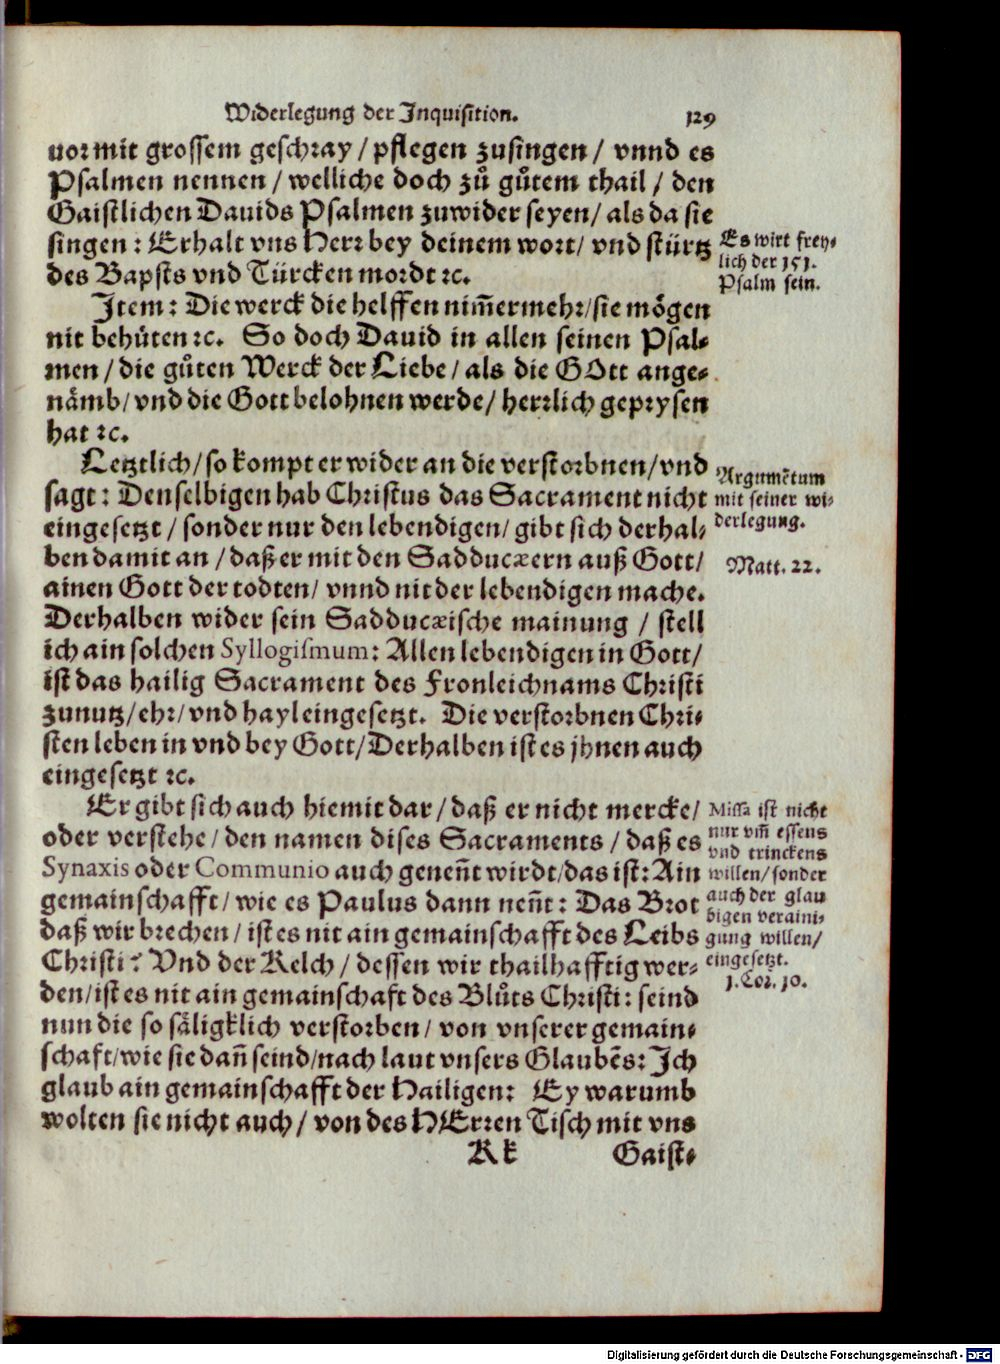 Widerlegung der Inquisition. 129
vor mit grossem geschray / pflegen zusingen / vnnd es
Psalmen nennen / welliche doch zů gůtem thail / den
Gaistlichen Dauids Psalmen zuwider seyen / als da sie
singen: Erhalt vns Herr bey deinem wort / vnd stürtz
des Bapsts vnd Türcken mordt ꝛc.
Es wirt frey⸗
lich der 151.
Psalm sein.
Item: Die werck die helffen nim̃ermehr / sie mögen
nit behüten ꝛc. So doch Dauid in allen seinen Psal⸗
men / die gůten Werck der Liebe / als die GOtt ange⸗
nämb / vnd die Gott belohnen werde / herrlich geprysen
hat ꝛc.
Letztlich / so kompt er wider an die verstorbnen / vnd
sagt: Denselbigen hab Christus das Sacrament nicht
eingesetzt / sonder nur den lebendigen / gibt sich derhal⸗
ben damit an / daß er mit den Sadducæern auß Gott /
ainen Gott der todten / vnnd nit der lebendigen mache.
Derhalben wider sein Sadducæische mainung / stell
ich ain solchen Syllogismum: Allen lebendigen in Gott /
ist das hailig Sacrament des Fronleichnams Christi
zunutz / ehr / vnd hayl eingesetzt. Die verstorbnen Chri⸗
sten leben in vnd bey Gott / Derhalben ist es jhnen auch
eingesetzt ꝛc.
Argumẽtum
mit seiner wi⸗
derlegung.
Matt. 22.
Er gibt sich auch hiemit dar / daß er nicht mercke /
oder verstehe / den namen dises Sacraments / daß es
Synaxis oder Communio auch geneñt wirdt / das ist: Ain
gemainschafft / wie es Paulus dann neñt: Das Brot
daß wir brechen / ist es nit ain gemainschafft des Leibs
Christi? Vnd der Kelch / dessen wir thailhafftig wer⸗
den / ist es nit ain gemainschaft des Blůts Christi: seind
nun die so säligklich verstorben / von vnserer gemain⸗
schaft / wie sie dañ seind / nach laut vnsers Glaubẽs: Ich
glaub ain gemainschafft der Hailigen: Ey warumb
wolten sie nicht auch / von des HErren Tisch mit vns
Missa ist nicht
nur vm̃ essens
vnd trinckens
willen / sonder
auch der glau
bigen veraini⸗
gung willen /
eingesetzt.
1. Cor. 10.
Kk Gaist⸗
Digitalisierung gefördert durch die Deutsche Forschungsgemeinschaft - DFG